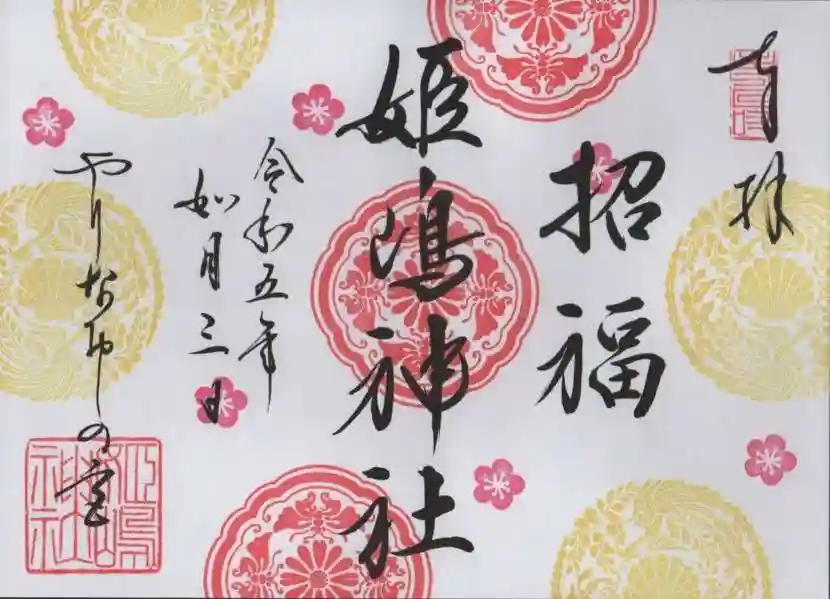 奉拝
招福
姫嶋神社
令和五年
如月三日
やりなおしの宮
姫嶋神社